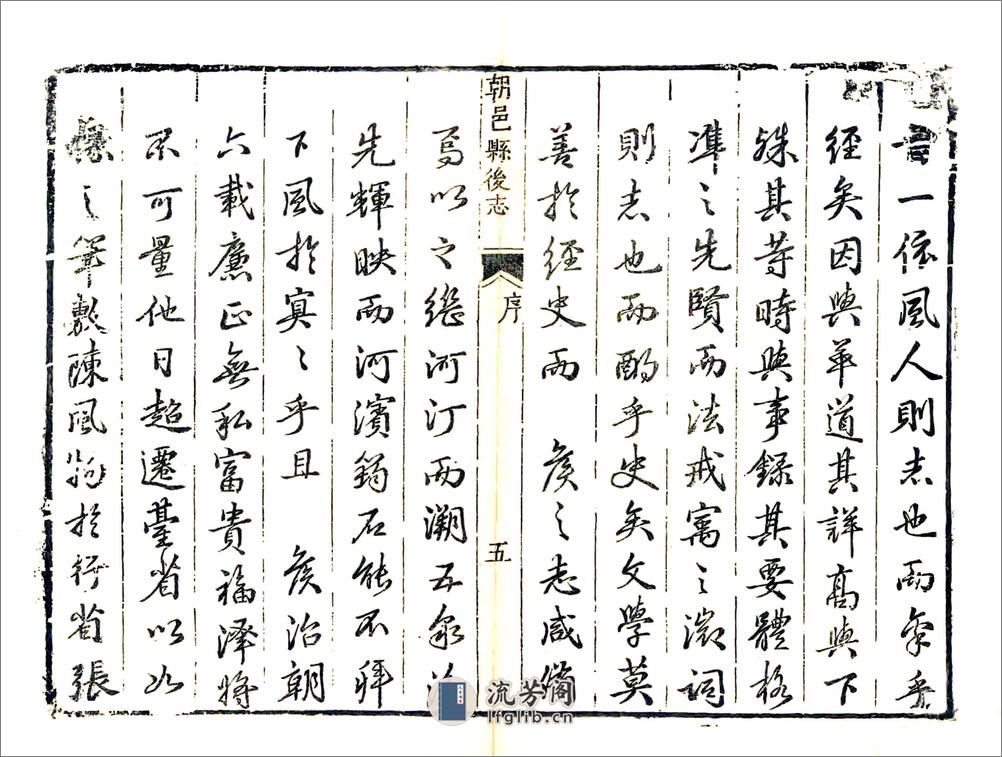 言一依風人則志也而象乎
經矣因與革道其詳高與下
殊其等時與事錄其要體格
準之先賢而法戒寓之微詞
則志也而酌乎史矣文學莫
善於經史而 侯之志咸備
焉以之繼河汀而溯五泉治
先輝映兩河濱錡石能不拜
下風於寞〻乎且 侯治朝
六載廉正無私富貴福澤將
不可量他日超遷臺省以如
椽之筆敷陳風物於行省張
朝邑縣後志
序
五
流芳閣
lfglib.cn